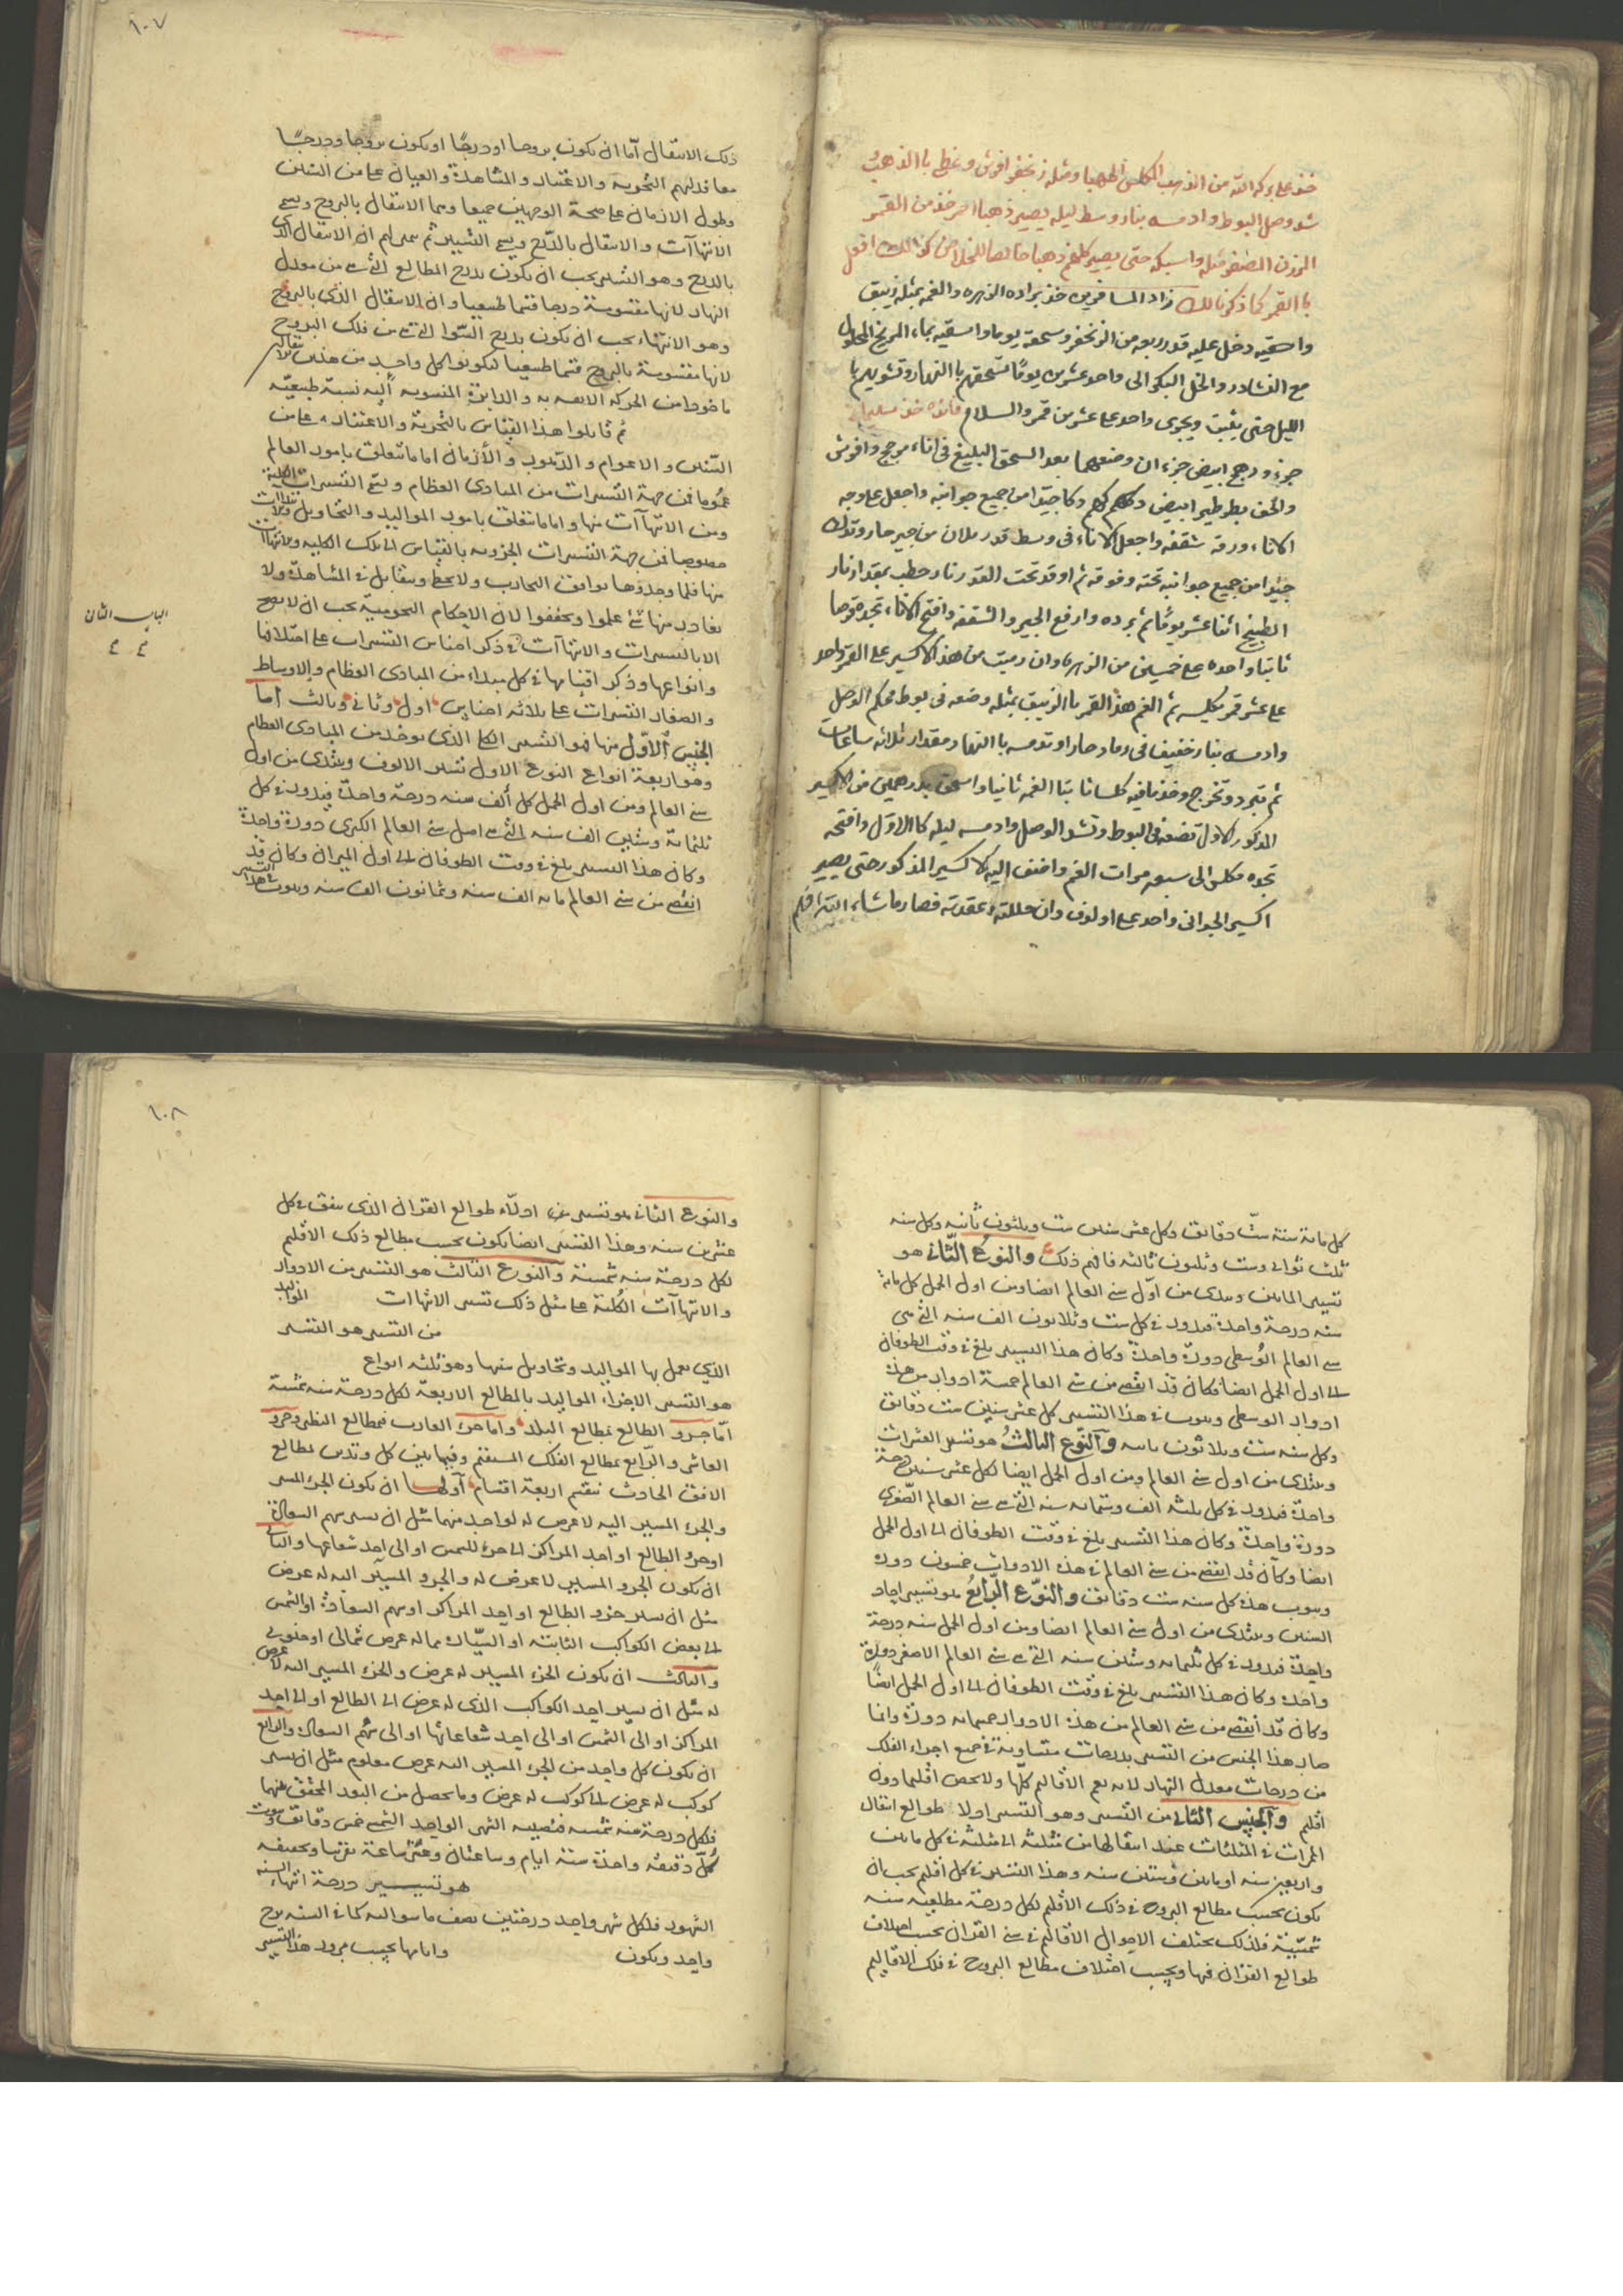 خذ على بركة الله من الذهب المكلس
شد وصل البوط وادمسه بنار وسط ليله يصير ذهبا احمر خذ من القمر
المرزن المصفر مثله واسبكه حتى يصير كلهم ذهبا خالصا للخلاص كذالك افعل
با القمر كما ذكرنا لك زاد المسافرين خذ براده الزهره والغمه بمثله زيبق
واسحقيه دخل عليه قدر ربعه من الزنجفر وسحقه يوما واسقيه بماء المريخ المحلول
مع النشادر والخل البكر الى واحد عشرين يوما تسحقهم با النهار وتشويهم با
الليل حتى يقيق ويجرى واحد على عشرين قمر والسلام
جزء ورهج ابيض جزءان وضعهما بعد السحق البليغ فى اناء مزجج وافرش
والحف بطرطير ابيض دكا جيدا من جميع جوانبه واجعل على وجه
الاناء ورقه شقفه واجعل الاناء فى وسط قدر ملان من جير حار وتدك
جيدا من جميع جوانبه تحته وفوقه ثم اوقد تحت القدر نار حطب بمقدار نار
الطبيخ اثنا عشر يوما ثم برده وارفع الجير والشقفه وافتح الاناء تجده قرصا
ثابتا واحده على خمسين من الزهره وان رميت من هذا الاكسير على القمر واحد
على عشر قمر تكليسه ثم الغم هذ القمر با الزيبق بمثله وضعه فى بوط محكم الوصل
وادمسه بنار خفيف فى رماد حار او تدمسه با النهار مقدار ثلاثه ساعات
ثم تبرد وتخرج وخذ مافيه كلسا ثابتا الغمه ثانيا واسحق بدرهمين من الاكسير
المذكور كالاول تضعه فى البوط وتشد الوصل وادمسه ليله كا الاول وافتحه
تجده مكلس الى سبعه مرات الغم واضف اليه الاكسير المذكور حتى يصير
اكسير الجوانى واحد على اولوف وان حللته وعقدته فصار ماشاء الله افهم
١٠٧
ذلك الانتقال اما ان يكون بروجا او درجا او يكون بروجا ودرجا
معا فدلهم التجربه والاعتبار والمشاهدة والعيان على من السنين
وطول الازمان على صحة الوجهين جميعا وسما الانتقال بالبروج ويسمى
الانتهاآت والانتقال بالدرج ويسمى التسيير ثم ان الانتقال الذى
بالدرج وهو التسيير يجب ان يكون بدرج المطالع التى من معدل
النهار لانها مقسومة درجا قسما طبيعيا وان الانتقال الذى بالبروج
وهو الانتهاء يجب ان يكون بدرج السوا التى من فلك البروج
لانها مقسومة بالبروج قسما طبيعيا ليكون كل واحد من هذين
ماخوذا من الحركة والدايرة المنسوبه اليه نسبة طبيعيه
ثم قابلوا هذا القياس بالتجربة والاعتبار على من
السنين والاعوام والدهور والأزمان اما ما يتعلق بامور العالم
عموما فمن جهة التسييرات من المبادى العظام
ومن الانتهاآت منها واما ما يتعلق بامور المواليد والتحاويل
خصوصا فمن جهة التسييرات الجزويه بالقياس الى تلك الكليه
منها فلما وجدوها توافق التجارب ولا يقابل فى المشاهدة ولا
يغادر منها شئ علموا وتحققوا لان الاحكام النجومية يجب ان لا يصح
الا بالتسييرات والانتهاآت فى ذكر اجناس التسييرات على اختلافها
وانواعها وذكر اقسامها فى كل مبداء من المبادى العظام والاوساط
والصغار التسيرات على ثلاثه اجناس اول وثانى وثالث أما
الجنس الأول منها فهو التسيير الكلى الذى يوخذ من المبادى العظام
وهو اربعة انواع النوع الاول تسيير الالوف ويبتدى من اول
سنى العالم ومن اول الحمل كل ألف سنه درجة واحدة فيدور فى كل
ثلثمائة وستين الف سنه التى هى اصل سنى العالم الكبرى دورة واحدة
وكان هذا التسيير بلغ فى وقت الطوفان الى اول الميزان وكان قد
انقضى من سنى العالم مايه الف سنه وثمانون الف سنه
الباب الثان
٤ ٤
كل مائة سنة ست دقائق وكل عشر سنين ست وثلثون ثانيه وكل سنه
ثلث ثوانى وست وثلثون ثالثه فافهم ذلك والنوع الثانى هو
تسيير الماين ويبتدى من أول سنى العالم ايضا ومن اول الحمل كل مائة
سنه درجة واحدة فيدور فى كل ست وثلاثون الف سنه التى هى
سنى العالم الوسطى دورة واحدة وكان هذا التسيير بلغ فى وقت الطوفان
الى اول الحمل ايضا وكان قد انقضى من سنى العالم خمسة ادوار من هذه
ادوار الوسطى فى هذا التسيير كل عشر سنين ست دقائق
وكل سنه ست وثلاثون ثانيه والنوع الثالث هو تسيير العشرات
ويبتدى من اول سنى العالم ومن اول الحمل ايضا لكل عشر سنين درجة
واحدة فيدور فى كل ثلثه الف وستمائه سنه التى هى سنى العالم الصغرى
دورة واحدة وكان هذا التسيير بلغ فى وقت الطوفان الى اول الحمل
ايضا وكان قد انقضى من سنى العالم فى هذه الادوار خمسون دوره
هذه كل سنه ست دقائق والنوع الرابع هو تسيير احاد
السنين ويبتدى من اول سنى العالم ايضا ومن اول الحمل سنه درجة
واحدة فيدور فى كل ثلثمايه وستين سنه التى هى سنى العالم الاصغر دورة
واحدة وكان هذا التسيير بلغ فى وقت الطوفان الى اول الحمل ايضا
وكان قد انقضى من سنى العالم من هذه الادوار خمسمايه دورة وانما
صار هذا الجنس من التسيير بدرجات متساوية فى جميع اجزاء الفلك
من درجات معدل النهار لانه يعم الاقاليم كلها ولا يخص اقليما دون
اقليم والجنس الثانى من التسيير وهو التسيير اولا طوالع انتقال
الممرات فى المثلثات عند انتقالها من مثلثه الى مثلثه فى كل مايتين
واربعين سنه او مايتين وستين سنه وهذا التسيير فى كل اقليم يجب ان
يكون بحسب مطالع البروج فى ذلك الاقليم لكل درجة مطلعيه سنه
شمسية فلذلك يختلف الاحوال الاقاليم فى سنى القران بحسب اختلاف
طوالع القران فيها وبحسب اختلاف مطالع البروج فى فلك الاقاليم
١٠٨
والنوع الثانى هو تسيير من ادلاء طوالع القران الذى يتفق فى كل
عشرين سنه وهذا التسيير ايضا يكون بحسب مطالع ذلك الاقليم
لكل درجة سنه شمسية والنوع الثالث هو التسيير من الادوار
والانتهاآت الكلية على مثل ذلك تسيير الانتهاات
من التسيير هو التسيير
الذى يعمل بها المواليد وتحاويل سنيها وهو ثلثه انواع
هو التسيير الاجزاء المواليد بالمطالع الاربعة لكل درجة سنه شمسية
أما جزو الطالع بمطالع البلد واما جزء الغارب فبمطالع النظير وجزو
العاشر والرابع بمطالع الفلك المستقيم وفيما بين كل وتدين بمطالع
الافق الحادث تنقسم اربعة اقسام أولها ان يكون الجزء المسير
والجزء المسير اليه لا عرض له لواحد منهما مثل ان يسير سهم السعادة
او جزو الطالع او احد المراكز الى جزء الشمس او الى احد شعاعها والثانى
ان يكون الجزو المسير لا عرض له والجزو المسير اليه له عرض
مثل ان يسير جزو الطالع او احد المراكز او سهم السعادة او الشمس
الى بعض الكواكب الثابته او السياره مما له عرض شمالى او جنوبى
والثالث ان يكون الجزء المسير له عرض والجزء المسير اليه لا عرض
له مثل ان يسير احد الكواكب الذى له عرض الى الطالع او الى احد
المراكز او الى الشمس او الى احد شعاعاتها او الى سهم السعادة والرابع
ان يكون كل واحد من الجزء المسير اليه عرض معلوم مثل ان يسير
كوكب له عرض الى كوكب له عرض وما يحصل من البعد المحقق بينهما
فلكل درجة سنه شمسيه فنصيب الشهر الواحد الشمسى خمس دقائق
كل دقيقه واحدة ستة ايام وساعتان وعشر ساعة تقريبا
هو تسيير درجة انتهاء السنه
الشهور فلكل شهر واحد درجتين نصف ما سواليه كما فى السنه برج
واحد ويكون واما بها بحسب مرور هذا التسيير